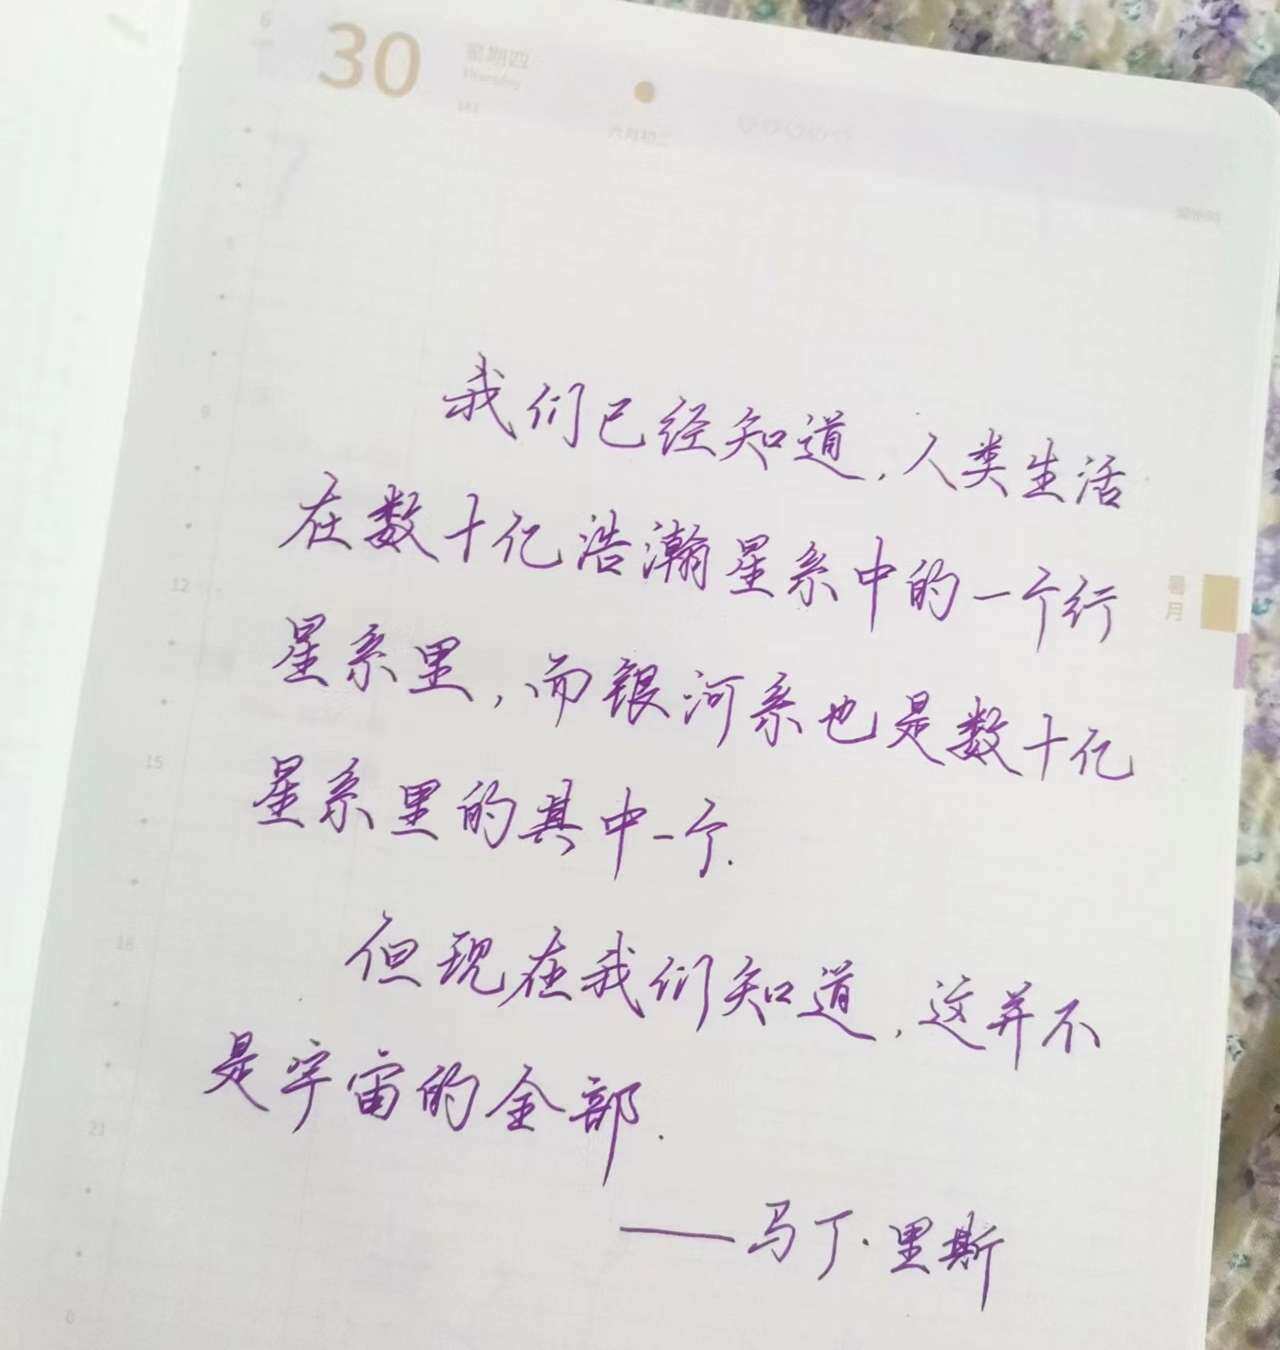 30
星期四
Thursday
六月初二
我们已经知道,人类生活
在数十亿浩瀚星系中的一个行
星系里,而银河系也是数十亿
星系里的其中一个.
但现在我们知道,这并不
是宇宙的全部.
——马丁·里斯
6
9
12
15
18
21
0
暑月